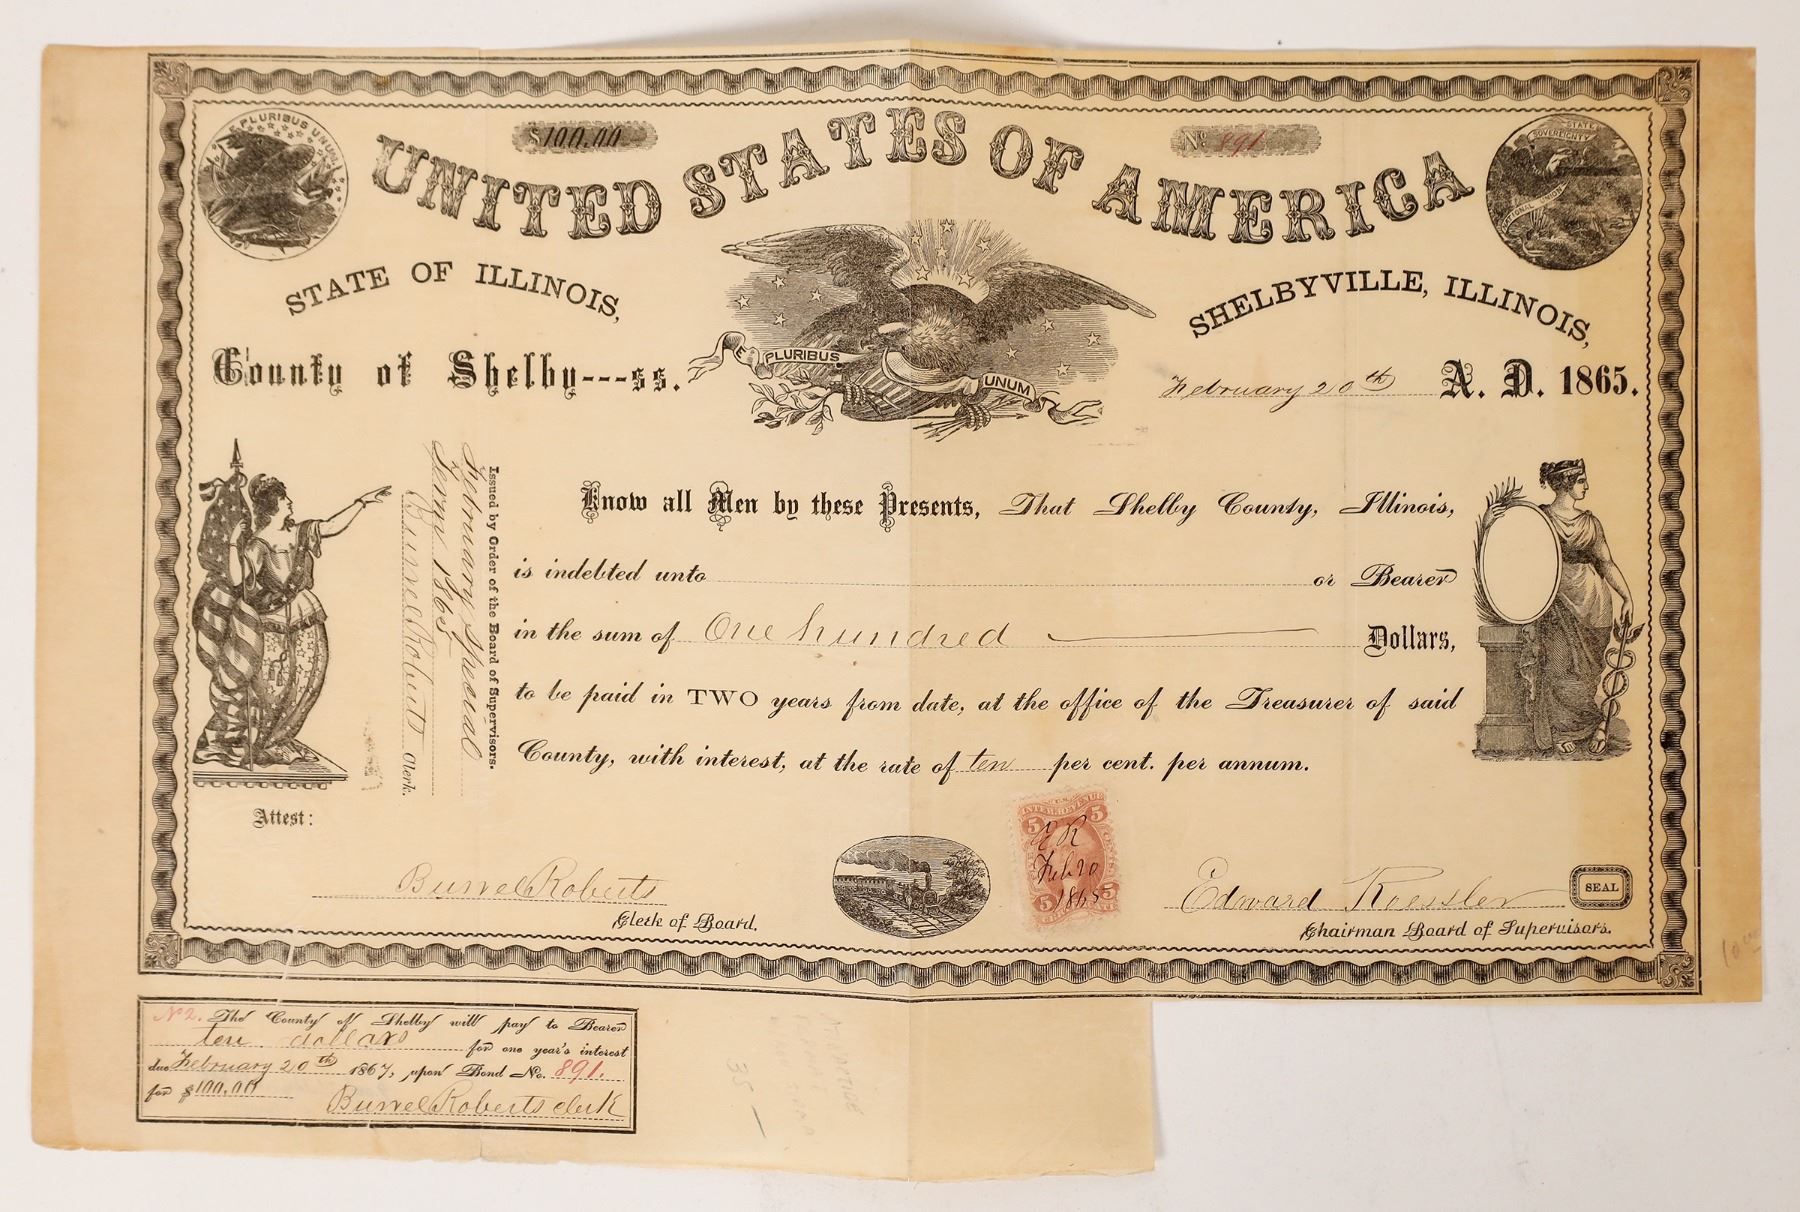 E PLURIBUS UNUM
$100.00
No 891
STATE SOVEREIGNTY
NATIONAL UNION
UNITED STATES OF AMERICA
STATE OF ILLINOIS,
SHELBYVILLE, ILLINOIS,
County of Shelby---ss.
E PLURIBUS UNUM
February 20th A. D. 1865.
Issued by Order of the Board of Supervisors.
February Special
Term 1865
Burrel Roberts Clerk.
Know all Men by these Presents, That Shelby County, Illinois,
is indebted unto or Bearer
in the sum of One hundred Dollars,
to be paid in TWO years from date, at the office of the Treasurer of said
County, with interest, at the rate of ten per cent. per annum.
Attest:
U.S.
INTER. REVENUE
5 5
E R
Feb 20
1865
5 5
FIVE CENTS
Burrel Roberts
Clerk of Board.
Edward Roessler
SEAL
Chairman Board of Supervisors.
No 2. The County of Shelby will pay to Bearer
ten dollars for one year's interest
due February 20th 1867, upon Bond No. 891.
for $100.00
Burrel Roberts clerk
35 –